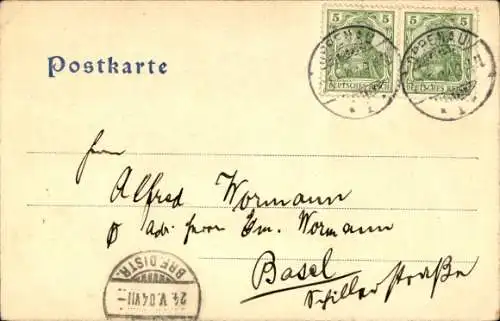 5 5
OPPENAU OPPENAU
DEUTSCHES REICH DEUTSCHES REICH
Postkarte
Herrn
Alfred Wormann
adr. Herrn Em. Wormann
Basel
Schillerstraße
BRF. DISTR.
24. V. 04. VII-